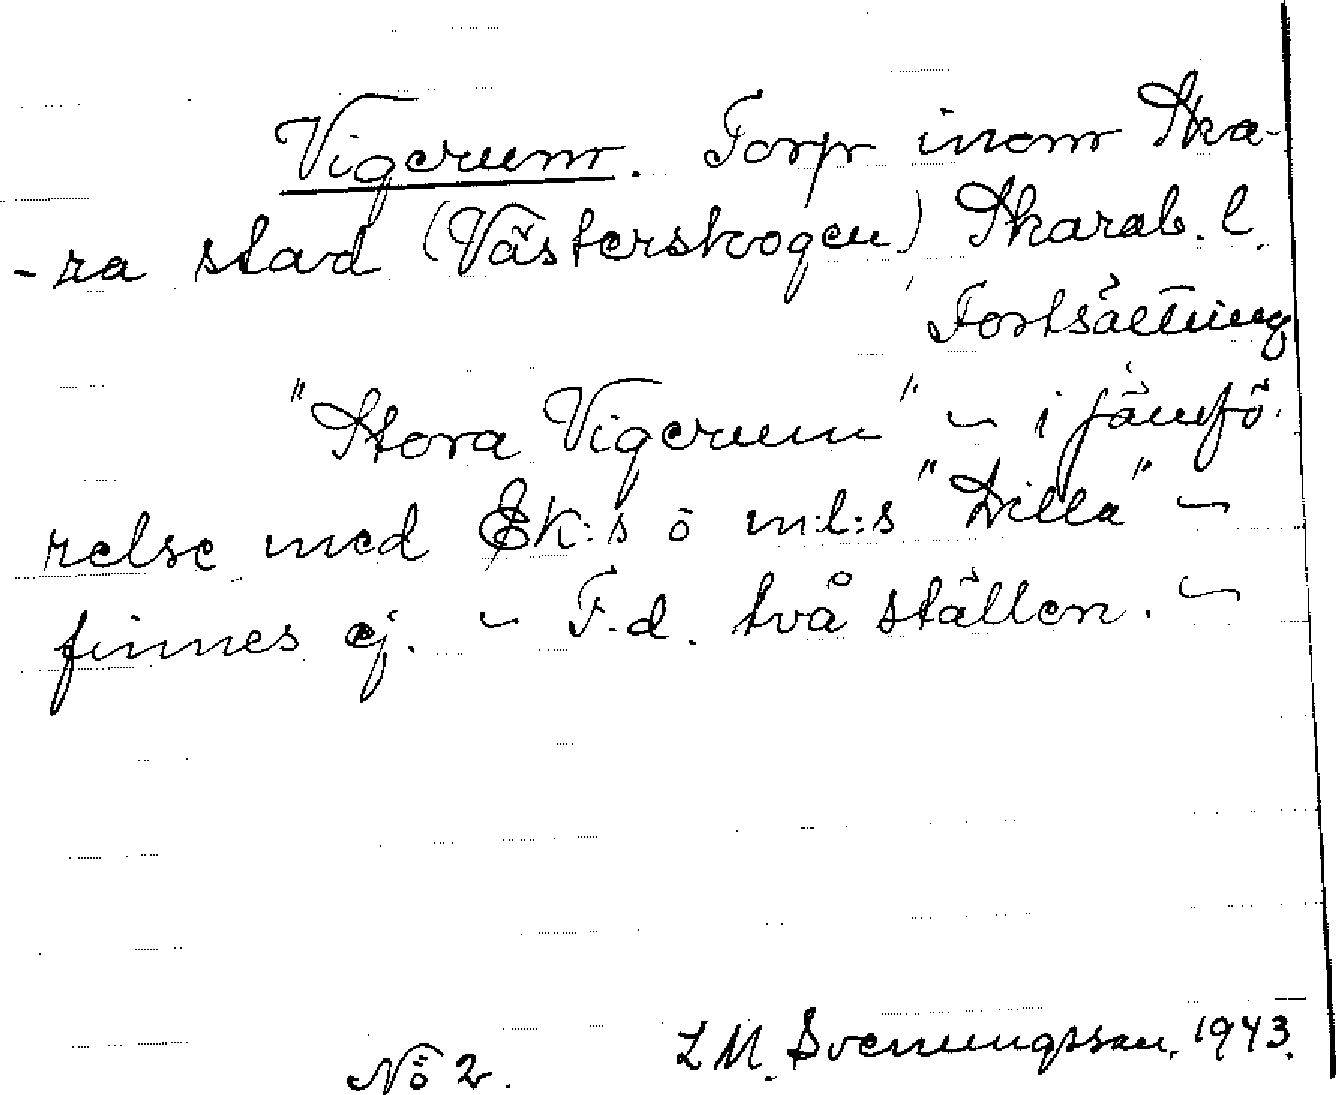 Vigerum. Torp inom Ska-
-ra stad (Västerskogen) Skarab. l.
Fortsättning
"Stora Vigerum" - i jämfö-
relse med Ek:s ö m:l:s "Lilla" -
finnes ej. - F.d. två ställen. -
No 2. L M. Svenungsson. 1943.